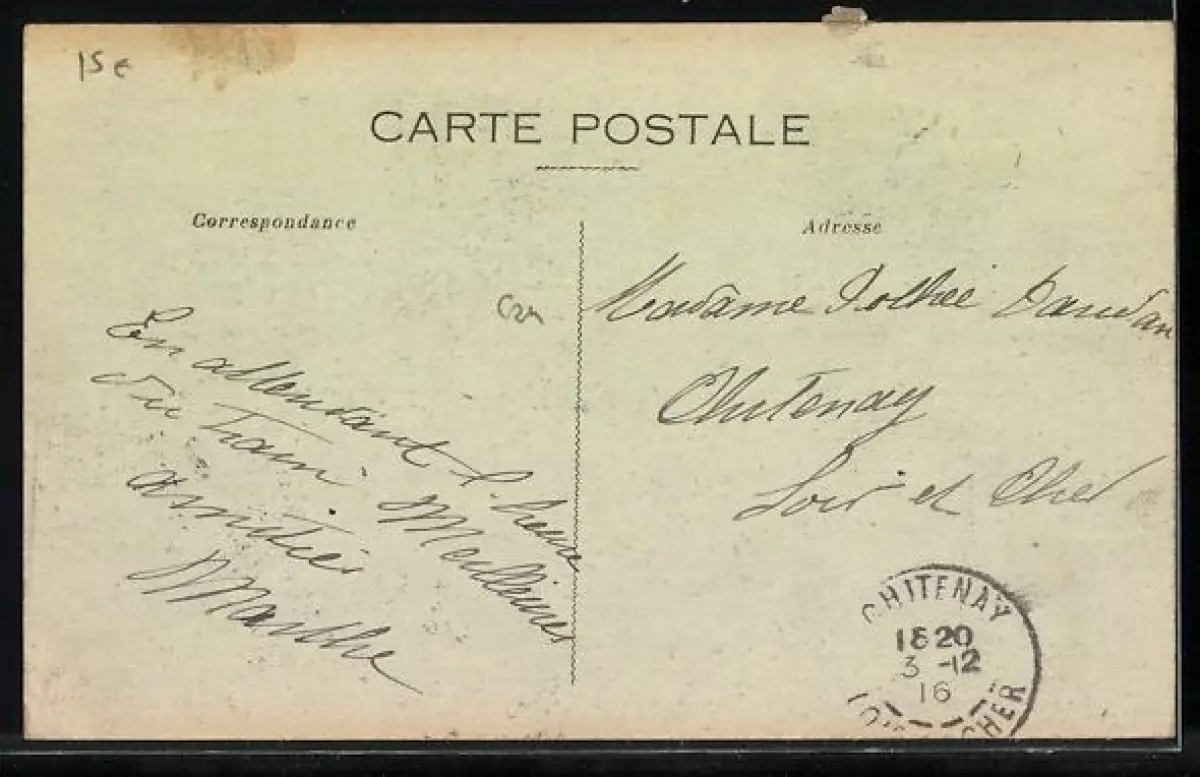 15 €
CARTE POSTALE
Correspondance
Adresse
En attendant l'heure
du train Meilleures
amitiés
Marthe
Madame
Chitenay
Loir et Cher
CHITENAY
1820
3 -12
16
LOIR CHER